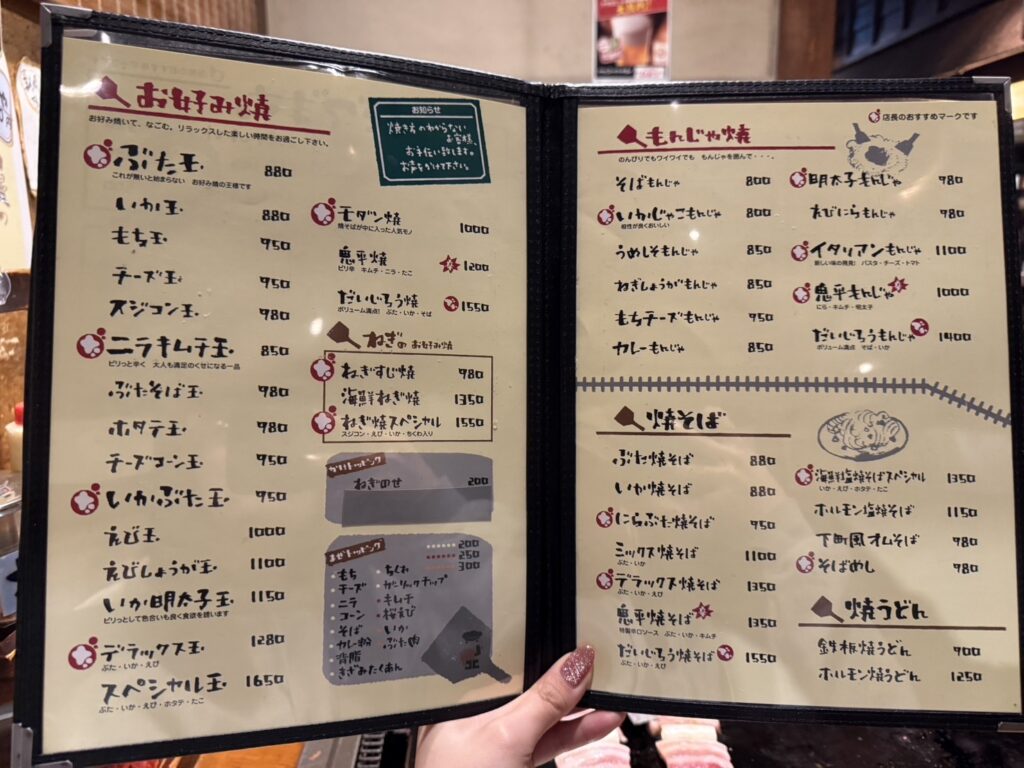 お好み焼
お好み焼いて、なごむ。リラックスした楽しい時間をお過ごし下さい。
ぶた玉 880
これが無いと始まらない お好み焼の王様です
いか玉 880
もち玉 950
チーズ玉 950
スジコン玉 980
ニラキムチ玉 850
ピリっと辛く 大人も満足のくせになる一品
ぶたそば玉 980
ホタテ玉 980
チーズコーン玉 950
いかぶた玉 950
えび玉 1000
えびしょうが玉 1100
いか明太子玉 1150
ピリっとして色合いも良く食欲を誘います
デラックス玉 1280
ぶた・いか・えび
スペシャル玉 1650
ぶた・いか・えび・ホタテ・たこ
お知らせ
焼き方のわからない
お客様、
お手伝い致します。
お声をかけて下さい。
モダン焼 1000
焼そばが中に入った人気モノ
鬼平焼 1200
ピリ辛 キムチ・ニラ・たこ
だいじろう焼 1550
ボリューム満点! ぶた・いか・そば
ねぎの お好み焼
ねぎすじ焼 980
海鮮ねぎ焼 1350
ねぎ焼スペシャル 1550
スジコン・えび・いか・ちくわ入り
かけトッピング
ねぎのせ 200
まぜトッピング
200
250
300
もち
チーズ
ニラ
コーン
そば
カレー粉
背脂
きざみたくあん
ちくわ
ガーリックチップ
キムチ
桜えび
いか
ぶた肉
店長のおすすめマークです
もんじゃ焼
のんびりでもワイワイでも もんじゃを囲んで・・・。
そばもんじゃ 800
いかじゃこもんじゃ 800
相性が良くおいしい
うめしそもんじゃ 850
ねぎしょうがもんじゃ 850
もちチーズもんじゃ 950
カレーもんじゃ 850
明太子もんじゃ 980
えびにらもんじゃ 980
イタリアンもんじゃ 1100
新しい味の発見! パスタ・チーズ・トマト
鬼平もんじゃ 1000
にら・キムチ・明太子
だいじろうもんじゃ 1400
ボリューム満点 そば・いか
焼そば
ぶた焼そば 880
いか焼そば 880
にらぶた焼そば 950
ミックス焼そば 1100
ぶた・いか
デラックス焼そば 1350
ぶた・いか・えび
鬼平焼そば 1350
特製辛口ソース ぶた・いか・キムチ
だいじろう焼そば 1550
ぶた・いか・えび
海鮮塩焼そばスペシャル 1350
いか・えび・ホタテ・たこ
ホルモン塩焼そば 1150
下町風オムそば 980
そばめし 980
焼うどん
鉄板焼うどん 900
ホルモン焼うどん 1250